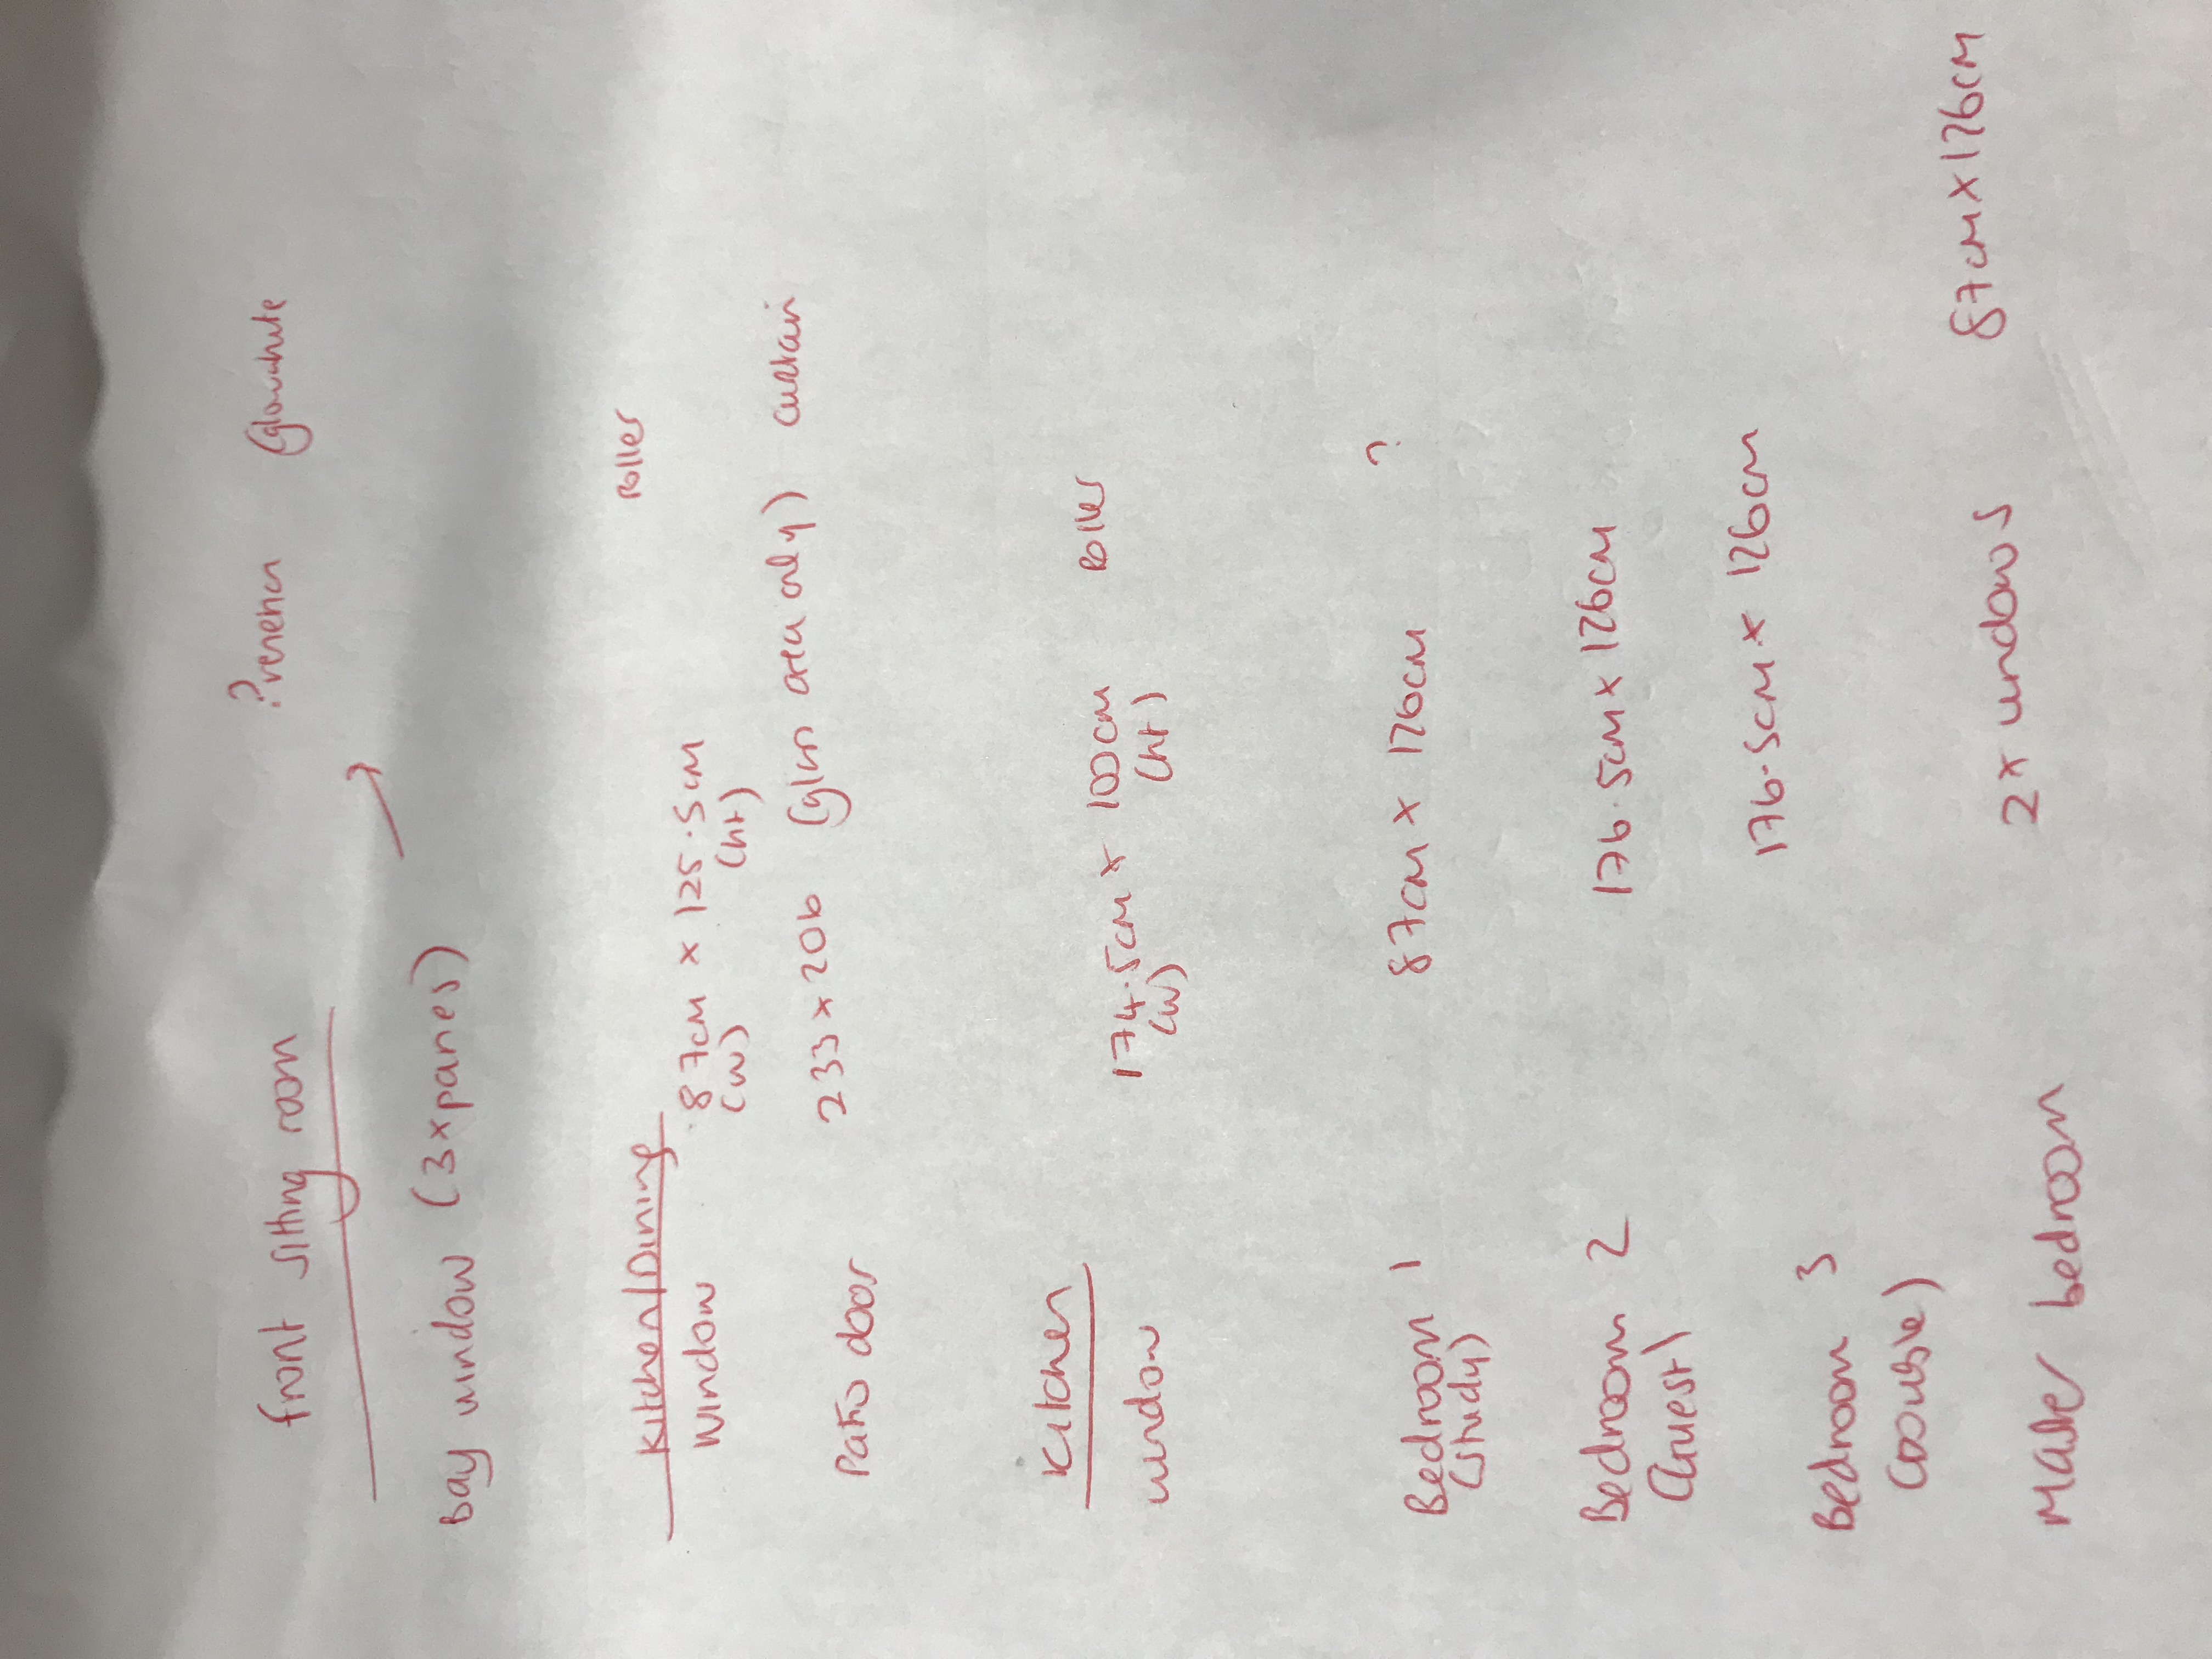 front sitting room ?veneta
bay window (3xpanes)
Kitchen/Dining Roller
Window 87cm x 125.5cm
(w) (ht)
Patio door 233 x 206 (glass area only) curtain
Kitchen
window 174.5cm x 100cm Roller
(w) (ht)
Bedroom 1 87cm x 126cm ?
(study)
Bedroom 2 176.5cm x 126cm
(Guest)
Bedroom 3 176.5cm x 126cm
Master bedroom 2 x windows 87cm x 126cm